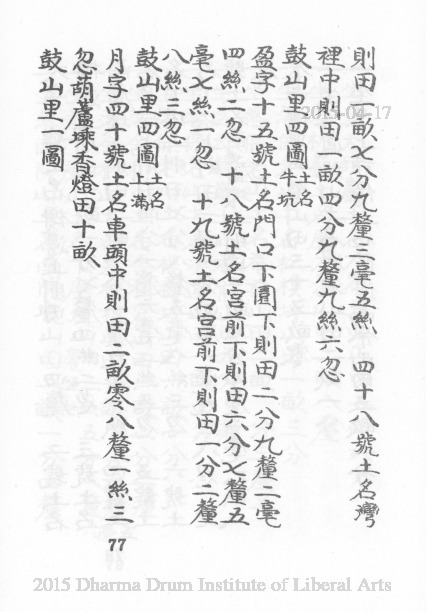 則田二畝七分九釐三毫五絲 四十八號土名灣
裡中則田一畝四分九釐九絲六忽
鼓山里四圖土名牛坑
盈字十五號土名門口下園下則田二分九釐二毫
四絲二忽 十八號土名宮前下則田六分七釐五
毫七絲一忽 十九號土名宮前下則田一分二釐
八絲三忽
鼓山里四圖土名上滿
月字四十號土名車頭中則田二畝零八釐一絲三
忽葫蘆𡑞香燈田十畝
鼓山里一圖
77
2015-04-17
2015 Dharma Drum Institute of Liberal Arts